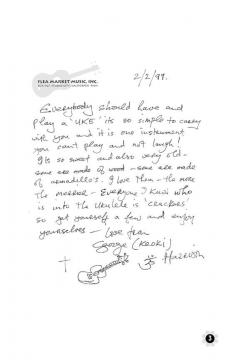 FLEA MARKET MUSIC, INC.
2/2/99.
Everybody should have and
play a 'UKE' its so simple to carry
with you and it is one instrument
you cant play and not laugh!
Its so sweet and also very old -
some are made of wood - some are made
of armadillo's. I love them - the more
the merrier - Everyone I know who
is into the ukulele is 'crackers'
so get yourself a few and enjoy
yourselves - Love from
George (Keoki)
Harrison
3